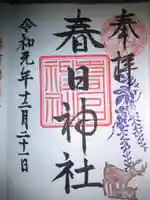 奉拝
春日神社
令和元年十二月二十一日